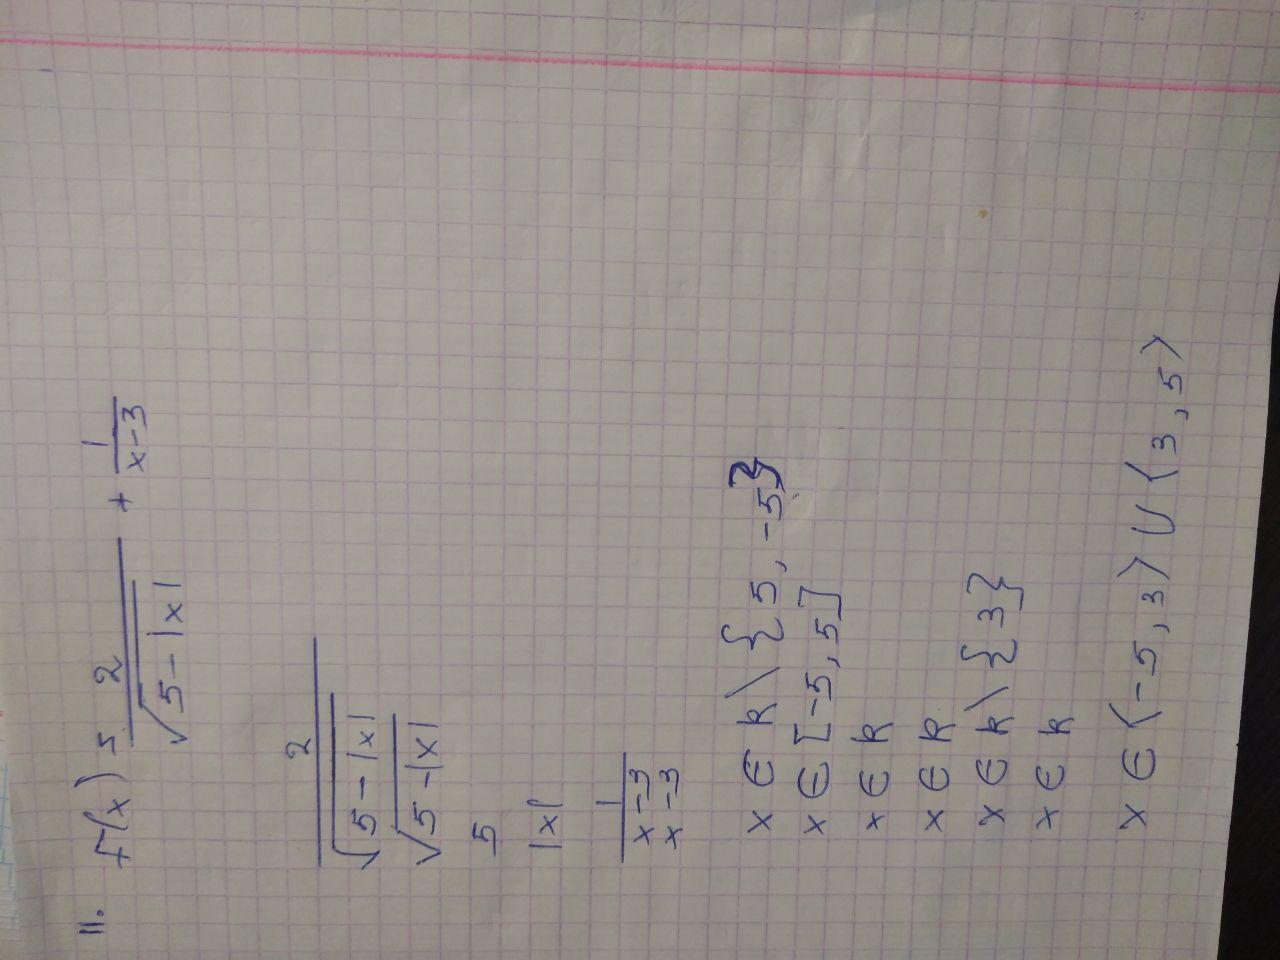 11. f(x) = 2/√(5-|x|) + 1/(x-3)
2/√(5-|x|)
√(5-|x|)
5
|x|
1/(x-3)
x-3
x ∈ R \ {5, -5}
x ∈ [-5, 5]
x ∈ R
x ∈ R
x ∈ R \ {3}
x ∈ R
x ∈ ⟨-5, 3⟩ ∪ ⟨3, 5⟩